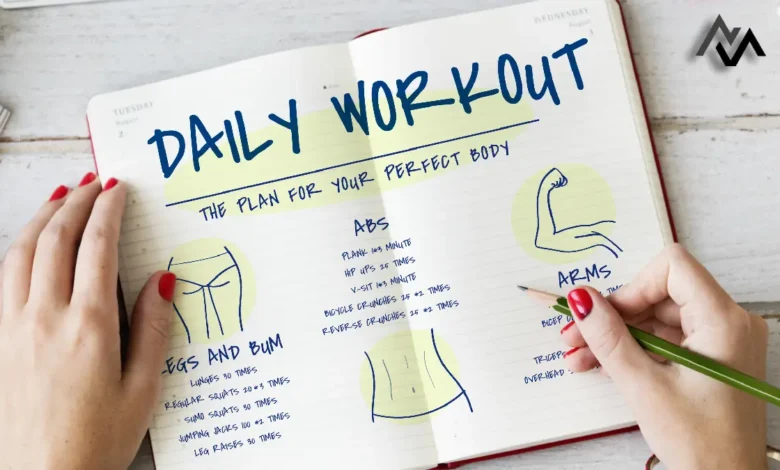 TUESDAY
2
WEDNESDAY
3
DAILY WORKOUT
THE PLAN FOR YOUR PERFECT BODY
ABS
PLANK 1*3 MINUTE
HIP UPS 25 TIMES
V-SIT 1*3 MINUTE
BICYCLE CRUNCHES 25 *2 TIMES
REVERSE CRUNCHES 25 *2 TIMES
ARMS
BICEP
TRICEPS
OVERHEAD
LEGS AND BUM
LUNGES 30 TIMES
REGULAR SQUATS 20 *3 TIMES
SUMO SQUATS 30 TIMES
JUMPING JACKS 100 *2 TIMES
LEG RAISES 30 TIMES